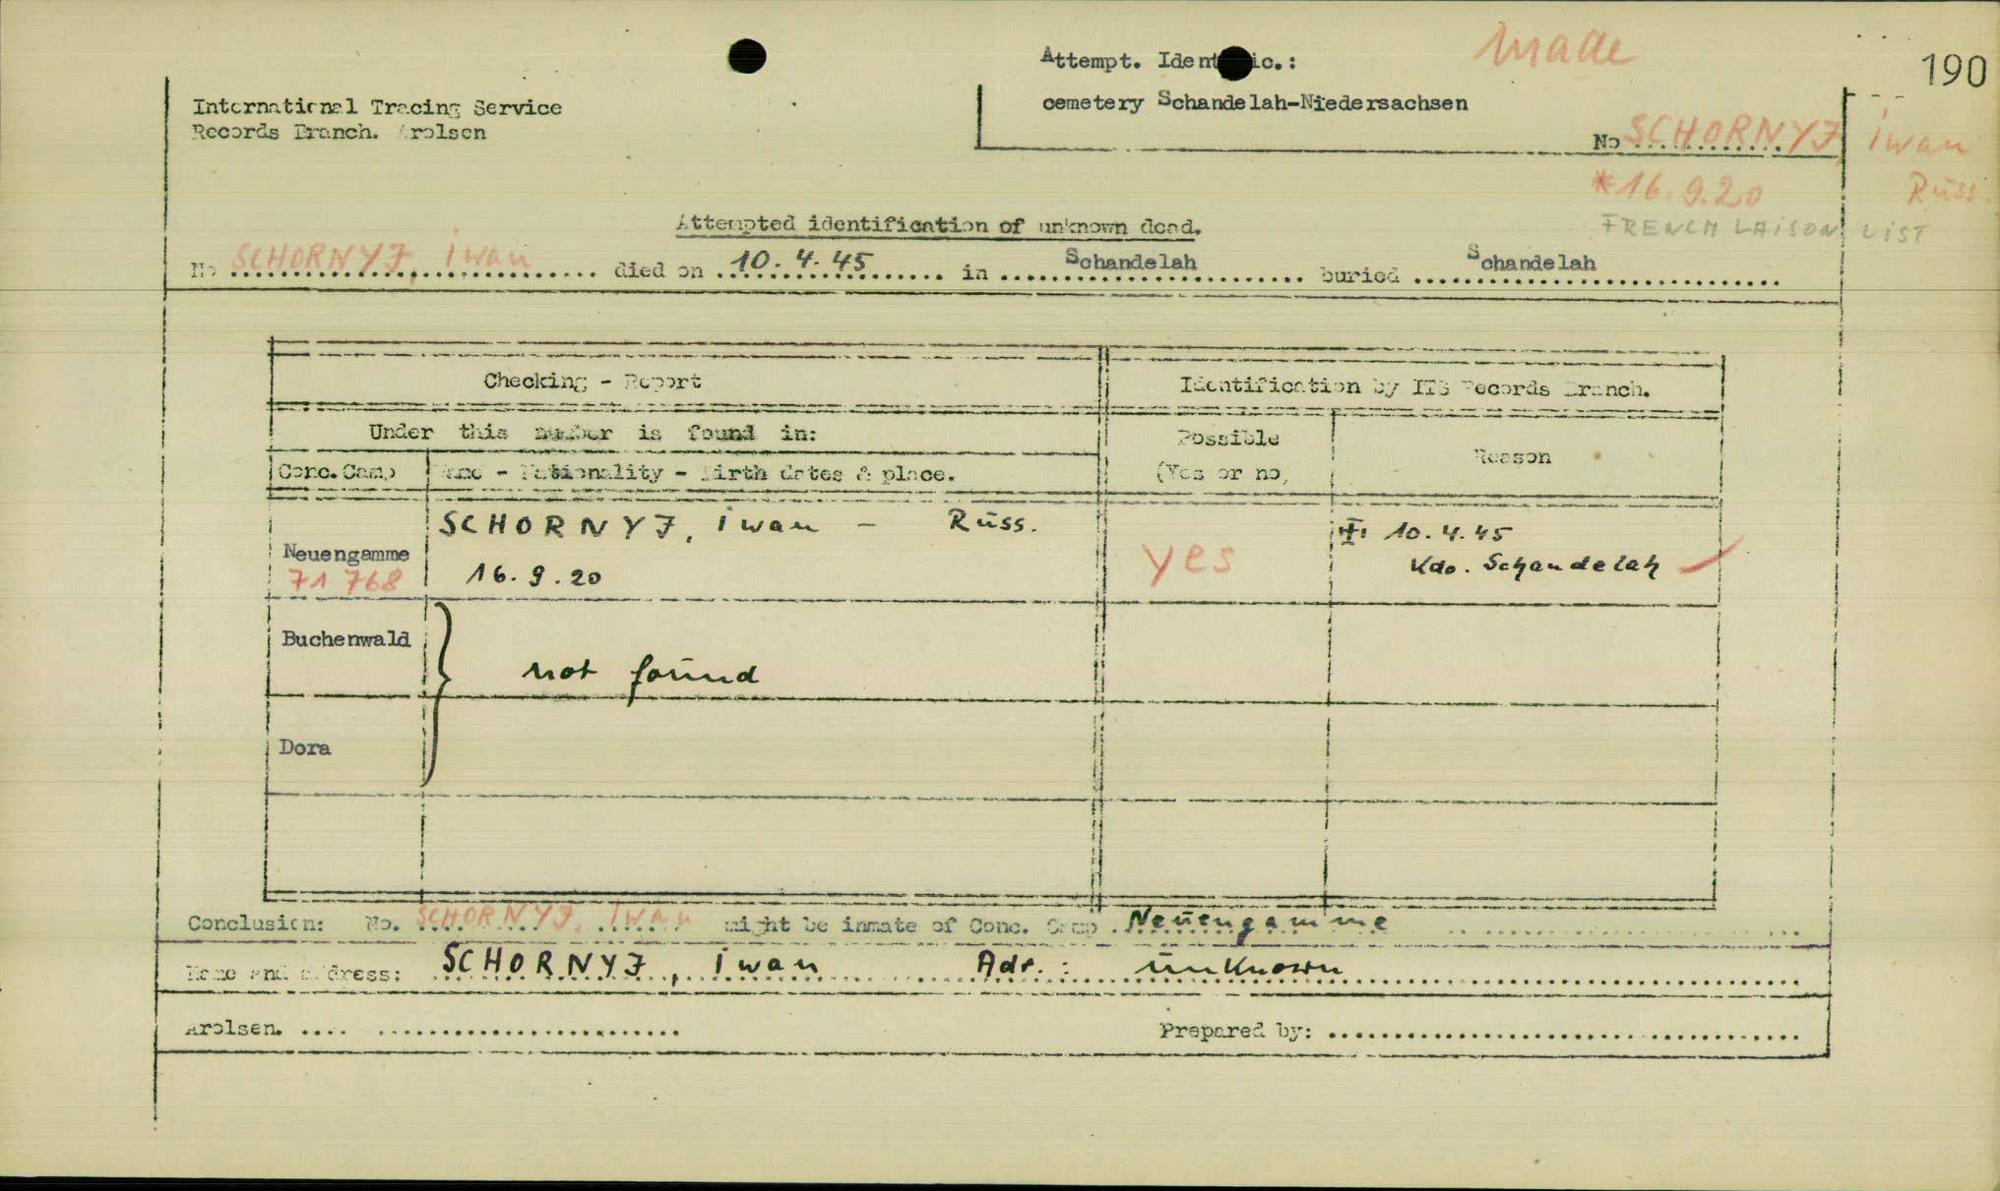 190
Attempt. Identific.: made
International Tracing Service
Records Branch. Arolsen
cemetery Schandelah-Niedersachsen
No SCHORNYJ, iwan
*16.9.20 Rüss.
FRENCH LAISON LIST
Attempted identification of unknown dead.
No SCHORNYJ, iwan died on 10.4.45 in Schandelah buried Schandelah
Checking - Report
Identification by ITS Records Branch.
Under this number is found in:
Possible
(Yes or no)
Reason
Conc.Camp Name - Nationality - Birth dates & place.
Neuengamme
71 768
SCHORNYJ, iwan - Rüss.
16.9.20
yes
10.4.45
Kdo. Schandelah
Buchenwald
not found
Dora
Conclusion: No. SCHORNYJ, iwan might be inmate of Conc. Camp Neuengamme
Name and address: SCHORNYJ, iwan Adr.: unknown
Arolsen.
Prepared by: